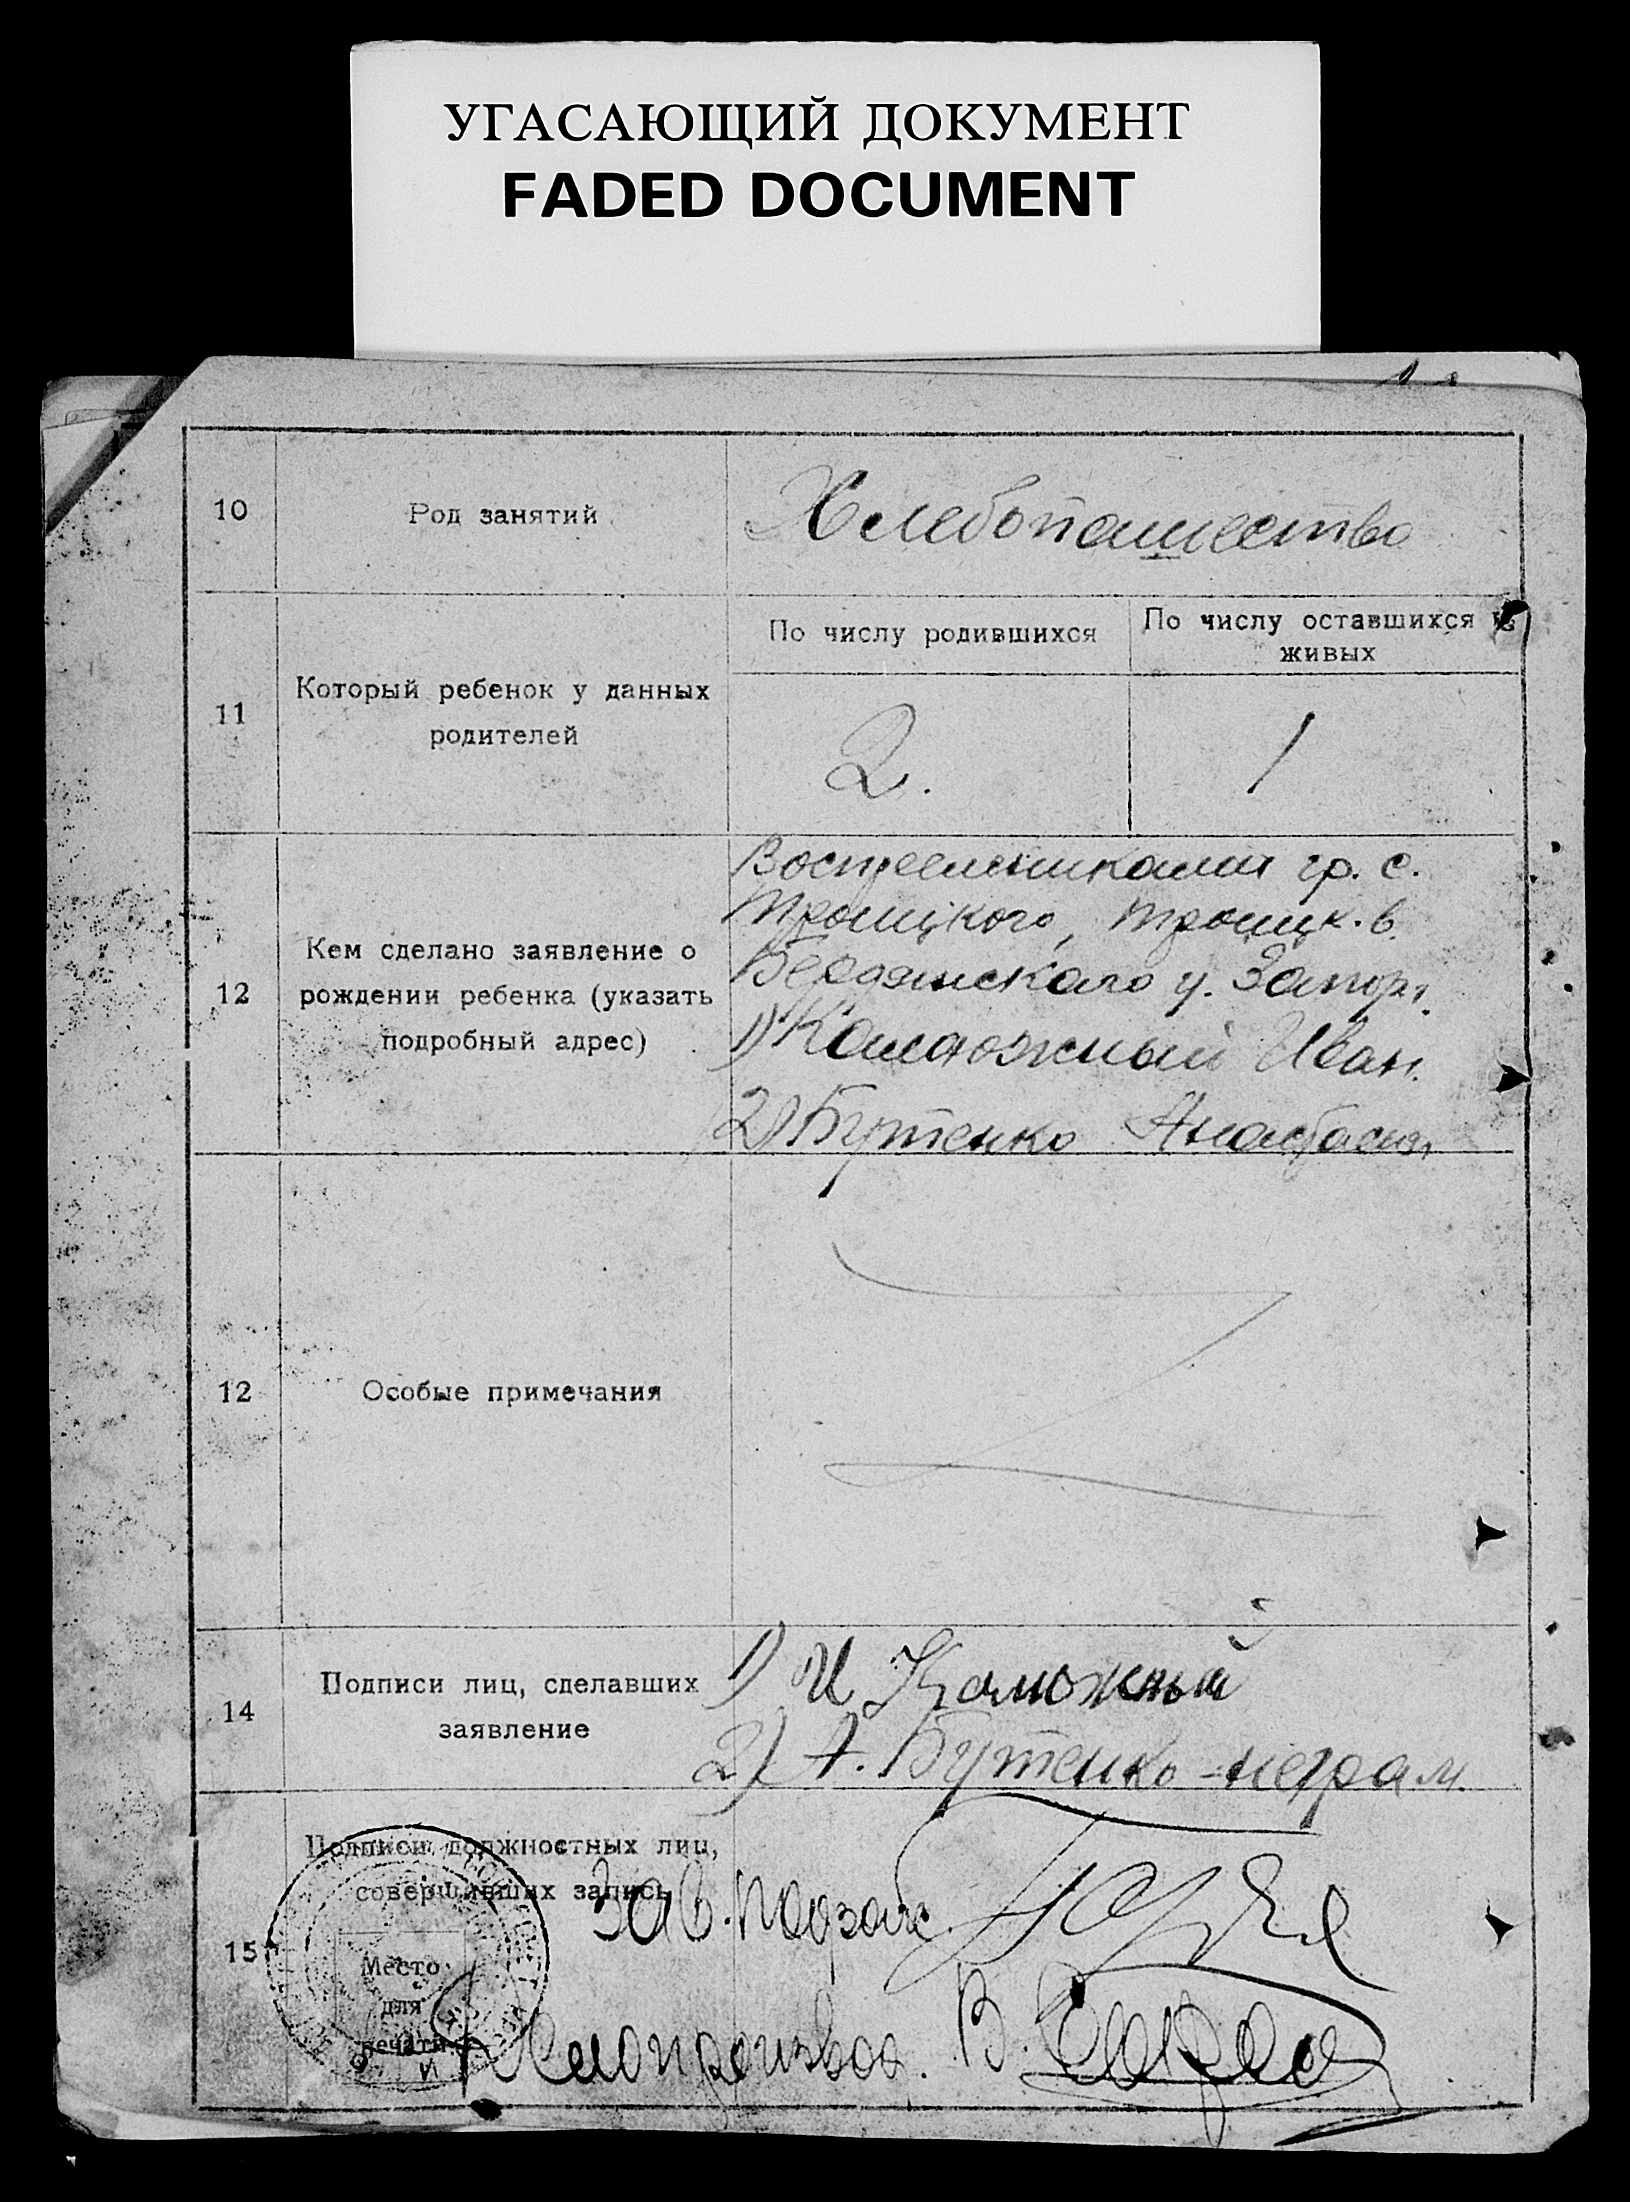 УГАСАЮЩИЙ ДОКУМЕНТ
FADED DOCUMENT
10
Род занятий
Хлебопашество
11
Который ребенок у данных
родителей
По числу родившихся
По числу оставшихся в
живых
2.
1
12
Кем сделано заявление о
рождении ребенка (указать
подробный адрес)
Восприемниками гр. с.
Троицкого, Троицк. в.
Бердянского у. Запор.
1) Камложный Иван.
2) Бутенко Анастасия,
12
Особые примечания
14
Подписи лиц, сделавших
заявление
1) И
2) А. Бутенко - неграм.
15
Подписи должностных лиц,
совершивших запись
Зав. подзагс
Место
для
печати
Делопроизвод. В.